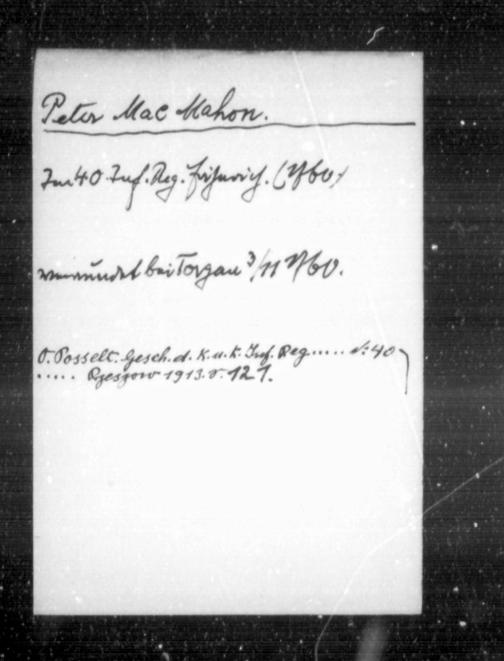 Peter Mac Mahon.
Im 40 Inf. Reg. Fähnrich. (1760)
verwundet bei Torgau 3/11 1760.
O. Posselt. Gesch. d. K. u. K. Inf. Reg..... N: 40
..... Rzeszow 1913. S. 121.